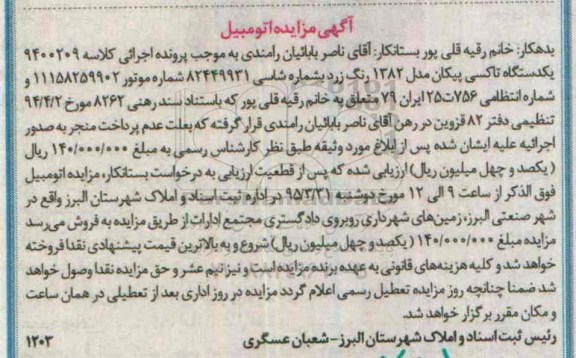 آگهی مزایده اتومبیل
بدهکار: خانم رقیه قلی پور بستانکار: آقای ناصر بابائیان رامندی به موجب پرونده اجرائی کلاسه ۹۴۰۰۲۰۹
یکدستگاه تاکسی پیکان مدل ۱۳۸۲ رنگ زرد بشماره شاسی ۸۲۴۴۹۹۳۱ شماره موتور ۱۱۱۵۸۲۵۹۹۰۲ و
شماره انتظامی ۷۵۶ت۲۵ ایران ۷۹ متعلق به خانم رقیه قلی پور که باستناد سند رهنی ۸۲۶۲ مورخ ۹۴/۴/۲
تنظیمی دفتر ۸۲ قزوین در رهن آقای ناصر بابائیان رامندی قرار گرفته که بعلت عدم پرداخت منجر به صدور
اجرائیه علیه ایشان شده پس از ابلاغ مورد وثیقه طبق نظر کارشناس رسمی به مبلغ ۱۴۰/۰۰۰/۰۰۰ ریال
( یکصد و چهل میلیون ریال) ارزیابی شده که پس از قطعیت ارزیابی به درخواست بستانکار، مزایده اتومبیل
فوق الذکر از ساعت ۹ الی ۱۲ مورخ دوشنبه ۹۵/۳/۳۱ در اداره ثبت اسناد و املاک شهرستان البرز واقع در
شهر صنعتی البرز، زمین‌های شهرداری روبروی دادگستری مجتمع ادارات از طریق مزایده به فروش می‌رسد
مزایده مبلغ ۱۴۰/۰۰۰/۰۰۰ ( یکصد و چهل میلیون ریال) شروع و به بالاترین قیمت پیشنهادی نقدا فروخته
خواهد شد و کلیه هزینه‌های قانونی به عهده برنده مزایده است و نیز نیم عشر و حق مزایده نقدا وصول خواهد
شد ضمنا چنانچه روز مزایده تعطیل رسمی اعلام گردد مزایده در روز اداری بعد از تعطیلی در همان ساعت
و مکان مقرر برگزار خواهد شد.
رئیس ثبت اسناد و املاک شهرستان البرز-شعبان عسگری ۱۲۰۳